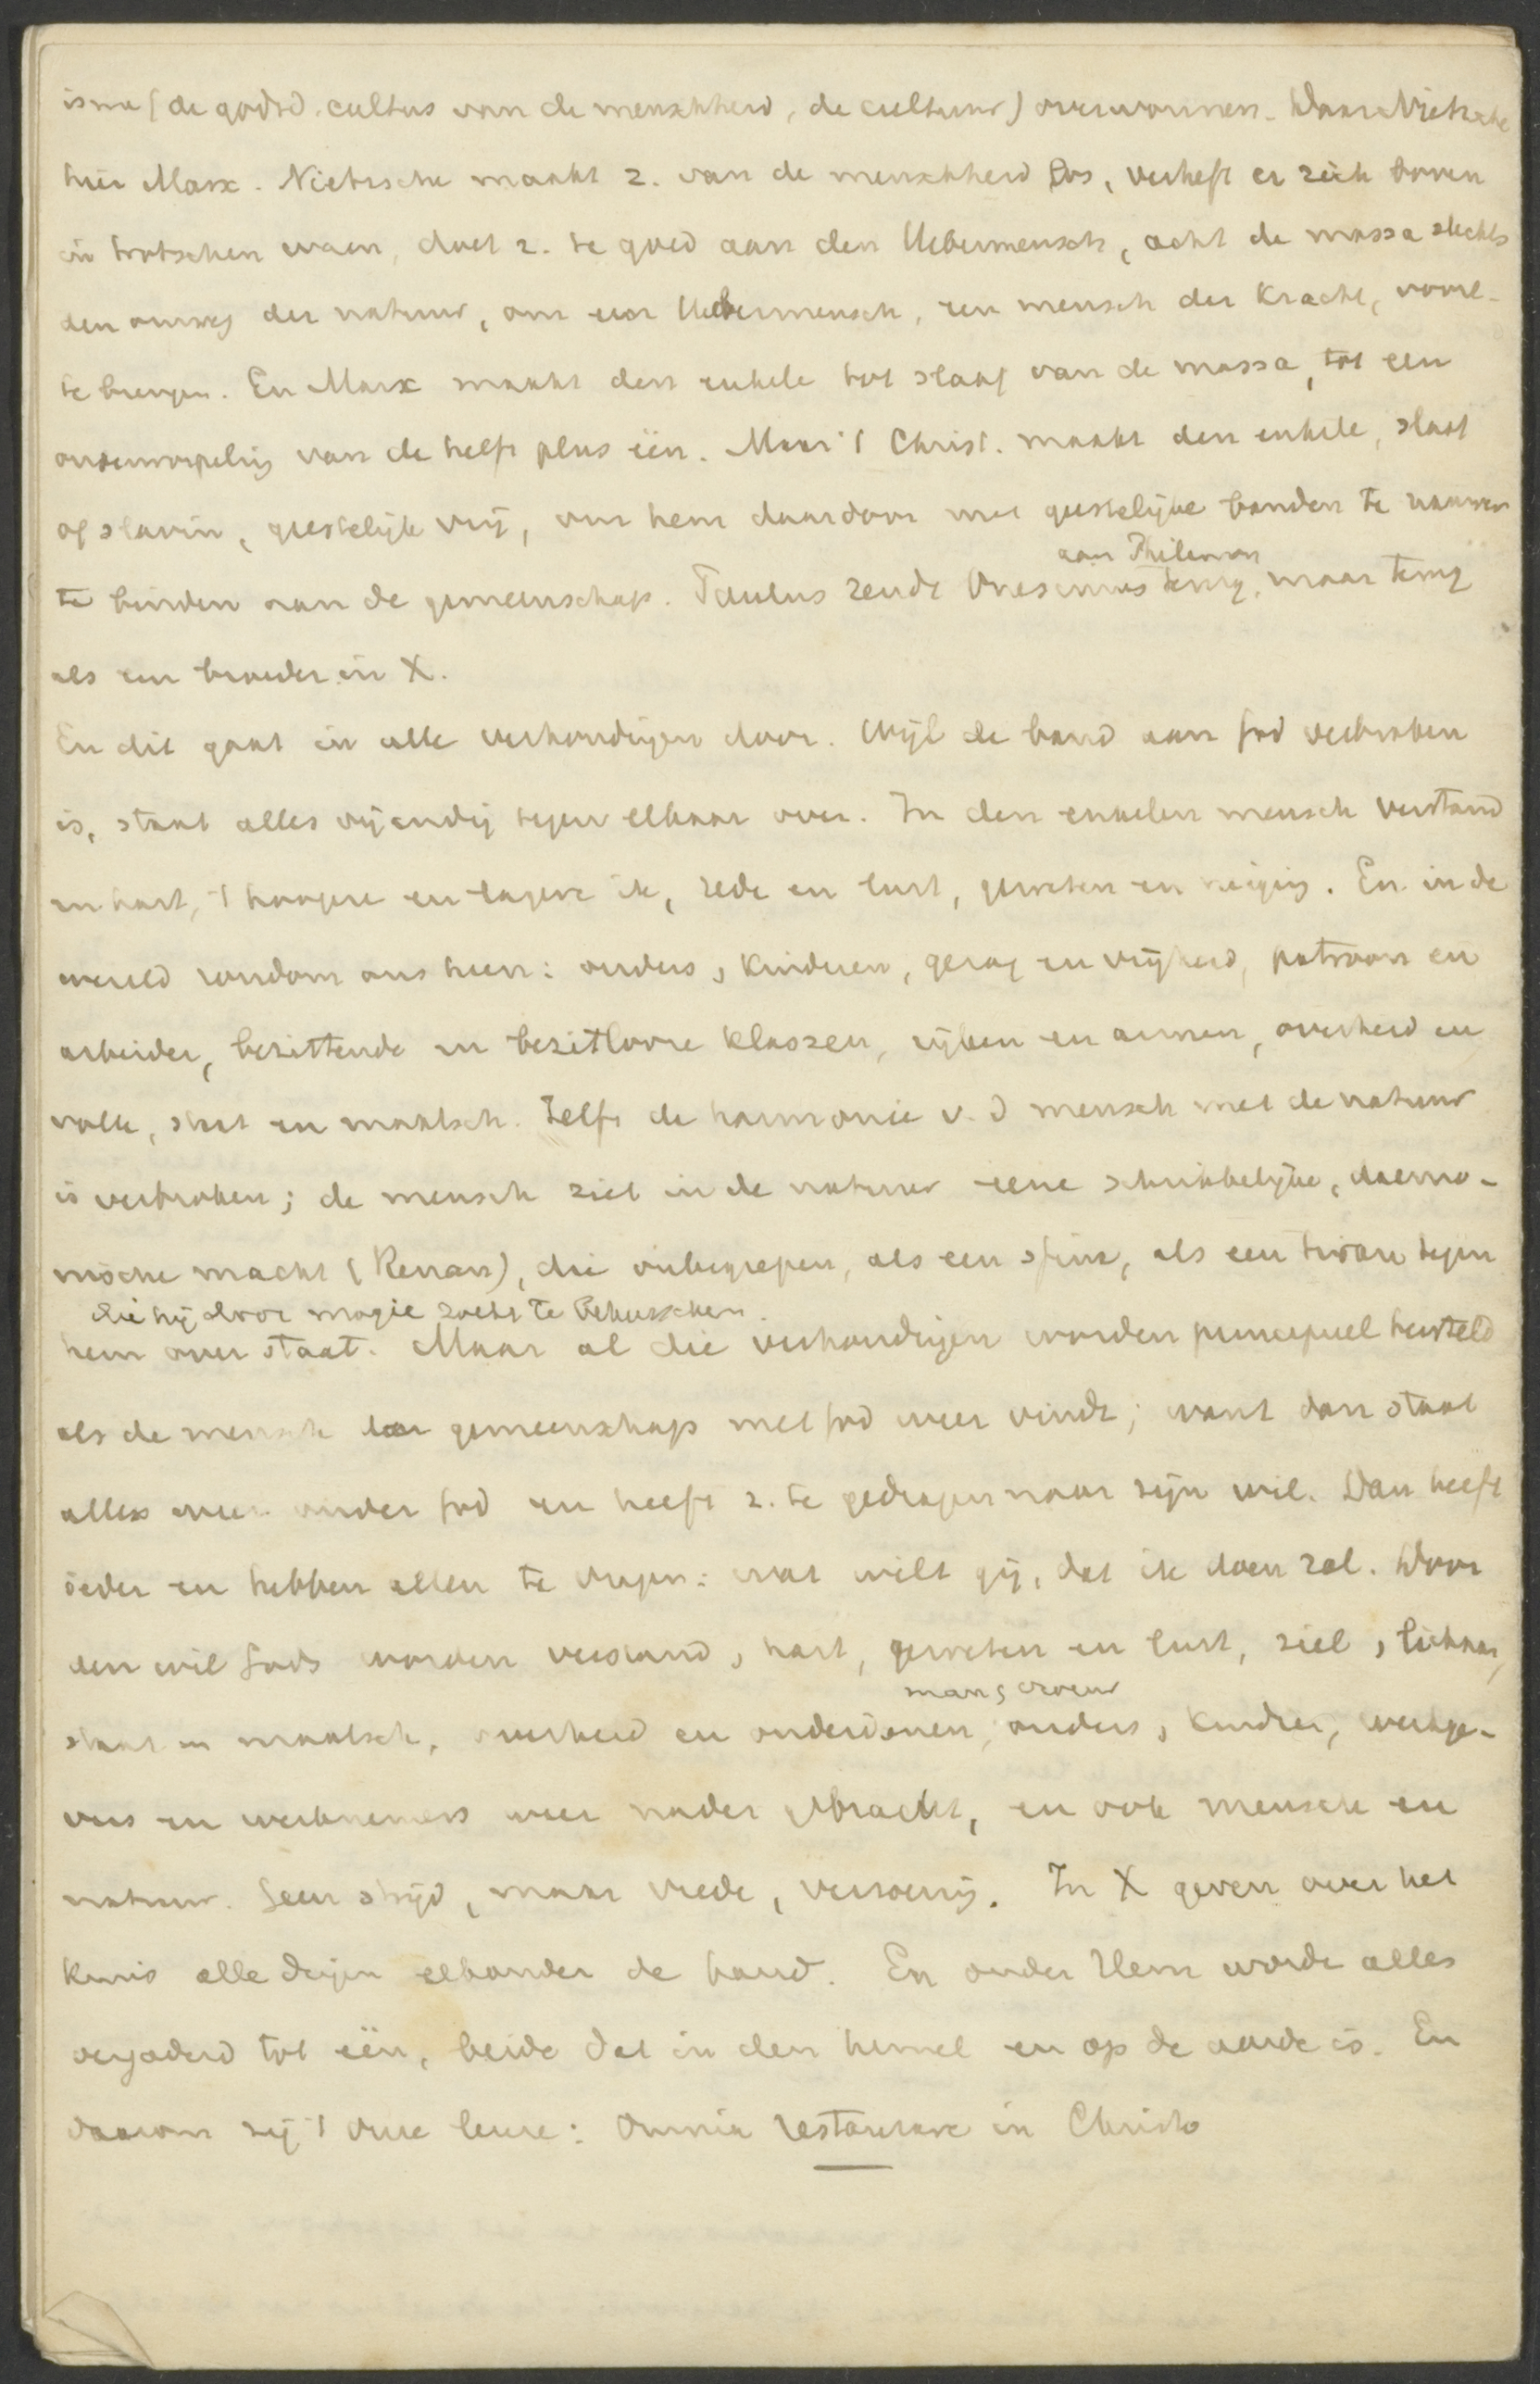 isme (de godsd. cultus van de menschheid, de cultuur) overwonnen. Daar Nietzsche
hier Marx. Nietzsche maakt z. van de menschheid los, verheft er zich boven
in trotschen waan, doet z. te goed aan den Uebermensch, acht de massa slechts
den omweg der natuur, om een Uebermensch, een mensch der kracht, voort-
te brengen. En Marx maakt den enkele tot slaaf van de massa, tot een
onderworpeling van de helft plus één. Maar 't Christ. maakt den enkele, slaaf
of slavin, geestelijk vrij, om hem daardoor met geestelijke banden te nauwer
aan Philemon
te binden aan de gemeenschap. Paulus zendt Onesimus terug, maar terug
als een broeder in X.
En dit gaat in alle verhoudingen door. Wijl de band aan God verbroken
is, staat alles vijandig tegen elkaar over. In den enkelen mensch verstand
en hart, 't hoogere en lagere ik, rede en lust, geweten en neiging. En in de
wereld rondom ons heen: ouders, kinderen, gezag en vrijheid, patroon en
arbeider, bezittende en bezitlooze klassen, rijken en armen, overheid en
volk, staat en maatsch. Zelfs de harmonie v. d mensch met de natuur
is verbroken; de mensch ziet in de natuur eene schrikkelijke, daemo-
nische macht (Renan), die onbegrepen, als een sfinx, als een tiran tegen
die hij door magie zoekt te beheerschen.
hem over staat. Maar al die verhoudingen worden principieel hersteld
als de mensch de gemeenschap met God weer vindt; want dan staat
alles weer onder God en heeft z. te gedragen naar zijn wil. Dan heeft
ieder en hebben allen te vragen: wat wilt gij, dat ik doen zal. Door
den wil Gods worden verstand, hart, geweten en lust, ziel, lichaam,
man, vrouw
staat en maatsch, overheid en onderdanen, ouders, kinderen, werkge-
vers en werknemers weer nader gebracht, en ook mensch en
natuur. Geen strijd, maar vrede, verzoening. In X geven over het
kruis alle dingen elkander de hand. En onder Hem worde alles
vergaderd tot één, beide dat in den hemel en op de aarde is. En
daarom zij 't onze leuze: Omnia restaurare in Christo